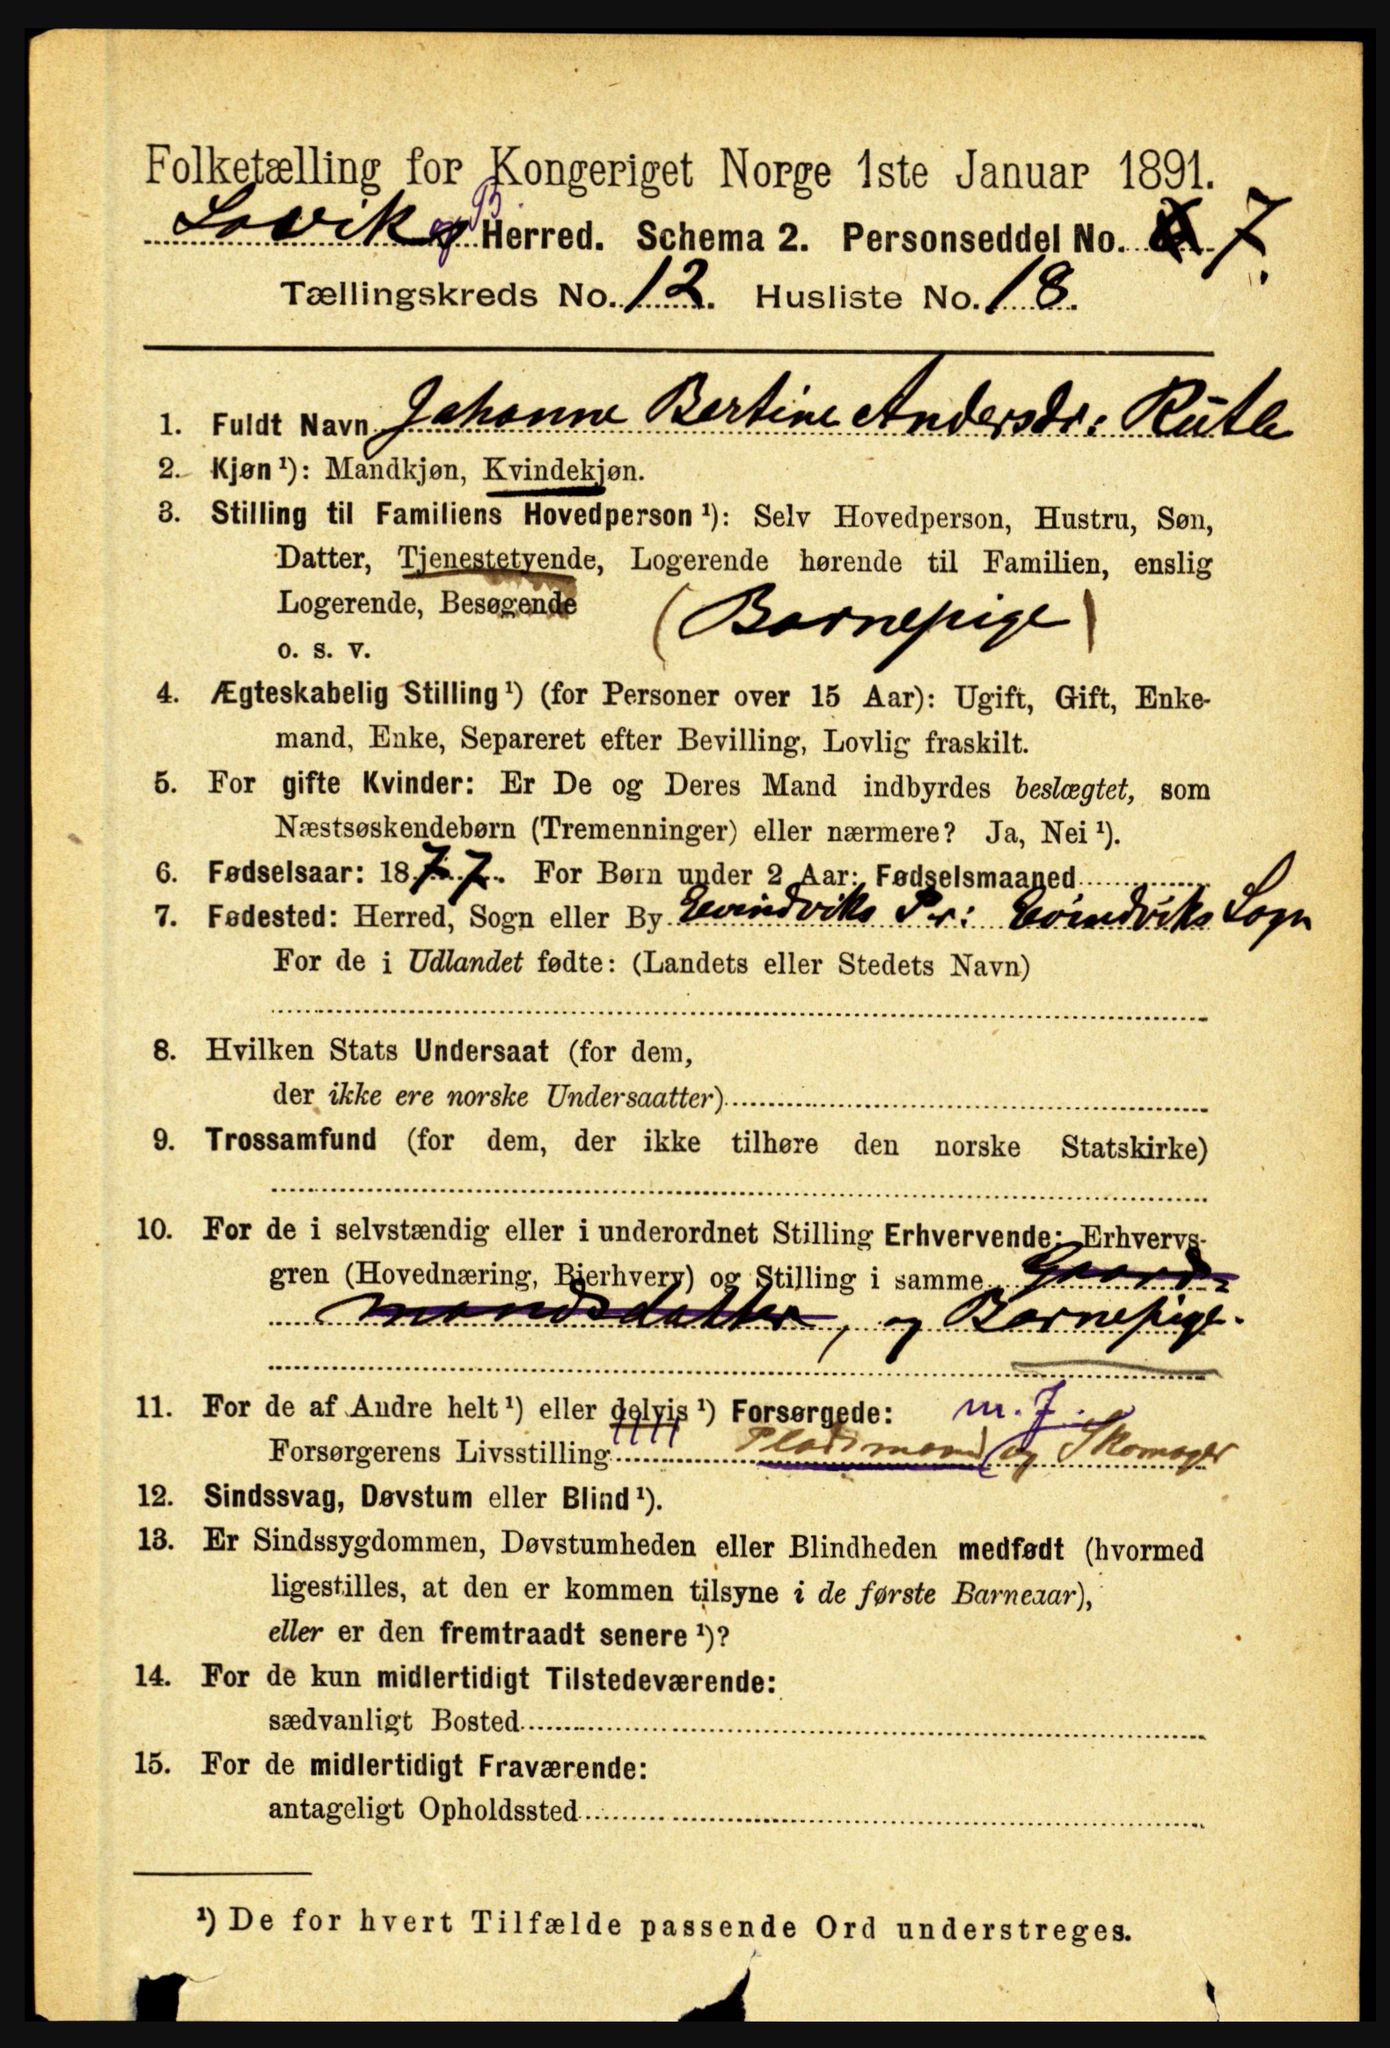 Folketælling for Kongeriget Norge 1ste Januar 1891.
Lavik og B. Herred. Schema 2. Personseddel No. 7.
Tællingskreds No. 12. Husliste No. 18.
1. Fuldt Navn Johanne Bertine Andersdr: Rutle
2. Kjøn ¹): Mandkjøn, Kvindekjøn.
3. Stilling til Familiens Hovedperson ¹): Selv Hovedperson, Hustru, Søn,
Datter, Tjenestetyende, Logerende hørende til Familien, enslig
Logerende, Besøgende (Barnepige)
o. s. v.
4. Ægteskabelig Stilling ¹) (for Personer over 15 Aar): Ugift, Gift, Enke-
mand, Enke, Separeret efter Bevilling, Lovlig fraskilt.
5. For gifte Kvinder: Er De og Deres Mand indbyrdes beslægtet, som
Næstsøskendebørn (Tremenninger) eller nærmere? Ja, Nei ¹).
6. Fødselsaar: 1877. For Børn under 2 Aar: Fødselsmaaned
7. Fødested: Herred, Sogn eller By Evindviks Pr: Evindviks Sogn
For de i Udlandet fødte: (Landets eller Stedets Navn)
8. Hvilken Stats Undersaat (for dem,
der ikke ere norske Undersaatter)
9. Trossamfund (for dem, der ikke tilhøre den norske Statskirke)
10. For de i selvstændig eller i underordnet Stilling Erhvervende: Erhvervs-
gren (Hovednæring, Bierhverv) og Stilling i samme Gaard-
mandsdatter, og Barnepige.
11. For de af Andre helt ¹) eller delvis ¹) Forsørgede: m. J.
Forsørgerens Livsstilling Pladsmand og Skomager
12. Sindssvag, Døvstum eller Blind ¹).
13. Er Sindssygdommen, Døvstumheden eller Blindheden medfødt (hvormed
ligestilles, at den er kommen tilsyne i de første Barneaar),
eller er den fremtraadt senere ¹)?
14. For de kun midlertidigt Tilstedeværende:
sædvanligt Bosted
15. For de midlertidigt Fraværende:
antageligt Opholdssted
¹) De for hvert Tilfælde passende Ord understreges.